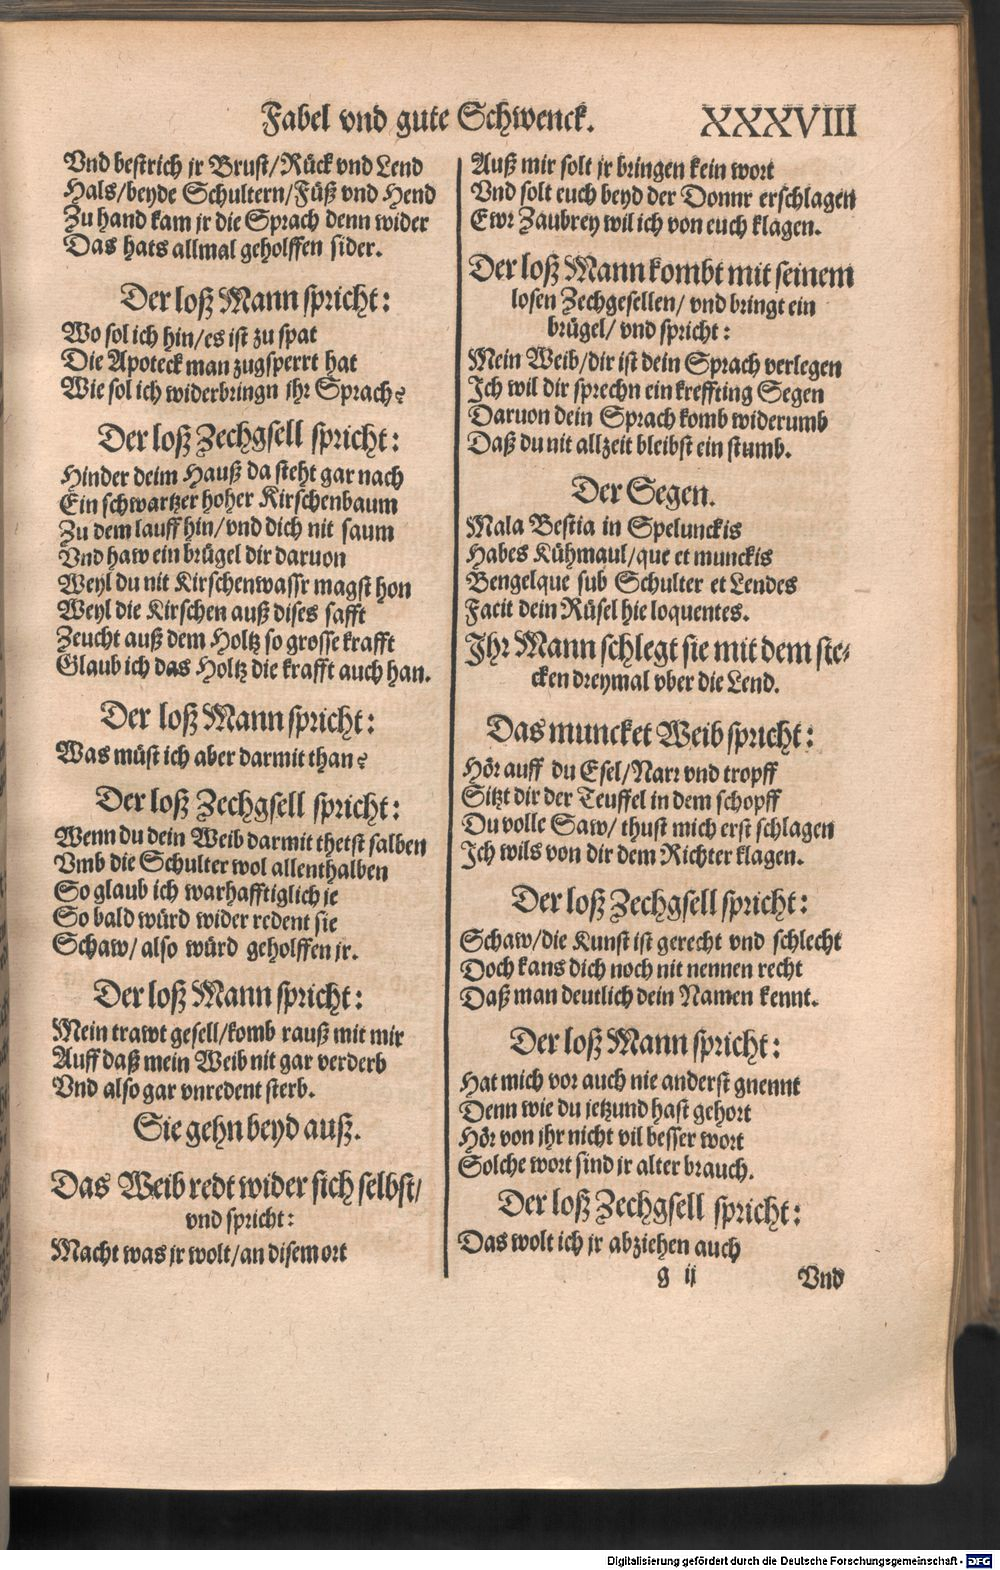 Fabel vnd gute Schwenck. XXXVIII
Vnd bestrich jr Brust/Rück vnd Lend
Hals/beyde Schultern/Füß vnd Hend
Zu hand kam jr die Sprach denn wider
Das hats allmal geholffen sider.
Der loß Mann spricht:
Wo sol ich hin/es ist zu spat
Die Apoteck man zugsperrt hat
Wie sol ich widerbringn jhr Sprach?
Der loß Zechgsell spricht:
Hinder deim Hauß da steht gar nach
Ein schwartzer hoher Kirschenbaum
Zu dem lauff hin/vnd dich nit saum
Vnd haw ein brügel dir daruon
Weyl du nit Kirschenwassr magst hon
Weyl die Kirschen auß dises safft
Zeucht auß dem Holtz so grosse krafft
Glaub ich das Holtz die krafft auch han.
Der loß Mann spricht:
Was müst ich aber darmit than?
Der loß Zechgsell spricht:
Wenn du dein Weib darmit thetst salben
Vmb die Schulter wol allenthalben
So glaub ich warhafftiglich je
So bald würd wider redent sie
Schaw/also würd geholffen jr.
Der loß Mann spricht:
Mein trawt gesell/komb rauß mit mir
Auff daß mein Weib nit gar verderb
Vnd also gar vnredent sterb.
Sie gehn beyd auß.
Das Weib redt wider sich selbst/
vnd spricht:
Macht was jr wolt/an disem ort
Auß mir solt jr bringen kein wort
Vnd solt euch beyd der Donnr erschlagen
Ewr Zaubrey wil ich von euch klagen.
Der loß Mann kombt mit seinem
losen Zechgesellen/vnd bringt ein
brügel/vnd spricht:
Mein Weib/dir ist dein Sprach verlegen
Ich wil dir sprechn ein kreffting Segen
Daruon dein Sprach komb widerumb
Daß du nit allzeit bleibst ein stumb.
Der Segen.
Mala Bestia in Spelunckis
Habes Kühmaul/que et munckis
Bengelque sub Schulter et Lendes
Facit dein Rüsel hie loquentes.
Ihr Mann schlegt sie mit dem ste-
cken dreymal vber die Lend.
Das muncket Weib spricht:
Hör auff du Esel/Narr vnd tropff
Sitzt dir der Teuffel in dem schopff
Du volle Saw/thust mich erst schlagen
Ich wils von dir dem Richter klagen.
Der loß Zechgsell spricht:
Schaw/die Kunst ist gerecht vnd schlecht
Doch kans dich noch nit nennen recht
Daß man deutlich dein Namen kennt.
Der loß Mann spricht:
Hat mich vor auch nie anderst gnennt
Denn wie du jetzund hast gehort
Hör von jhr nicht vil besser wort
Solche wort sind jr alter brauch.
Der loß Zechgsell spricht:
Das wolt ich jr abziehen auch
g ij Vnd
Digitalisierung gefördert durch die Deutsche Forschungsgemeinschaft - DFG